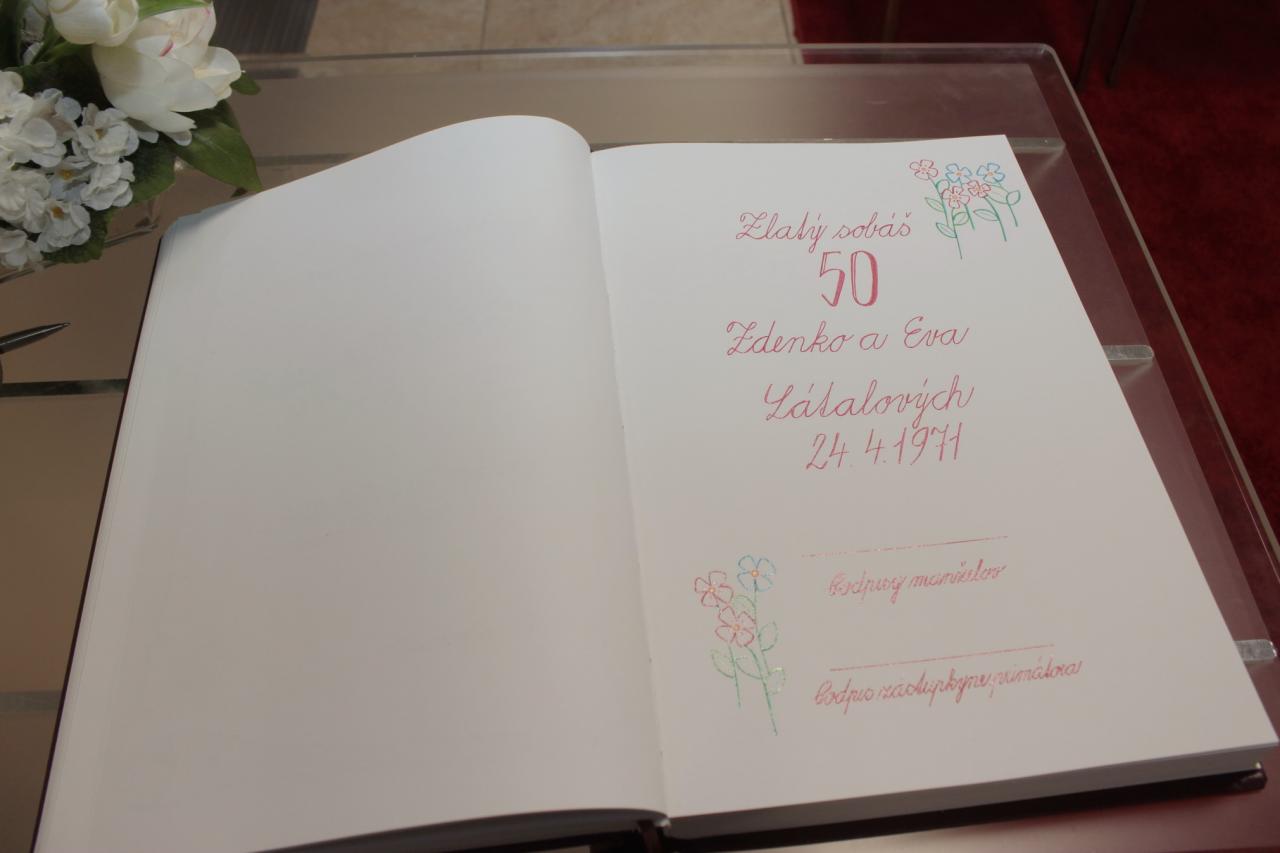 Zlatý sobáš
50
Zdenko a Eva
Látalových
24.4.1971
Podpisy manželov
Podpis zástupkyne primátora